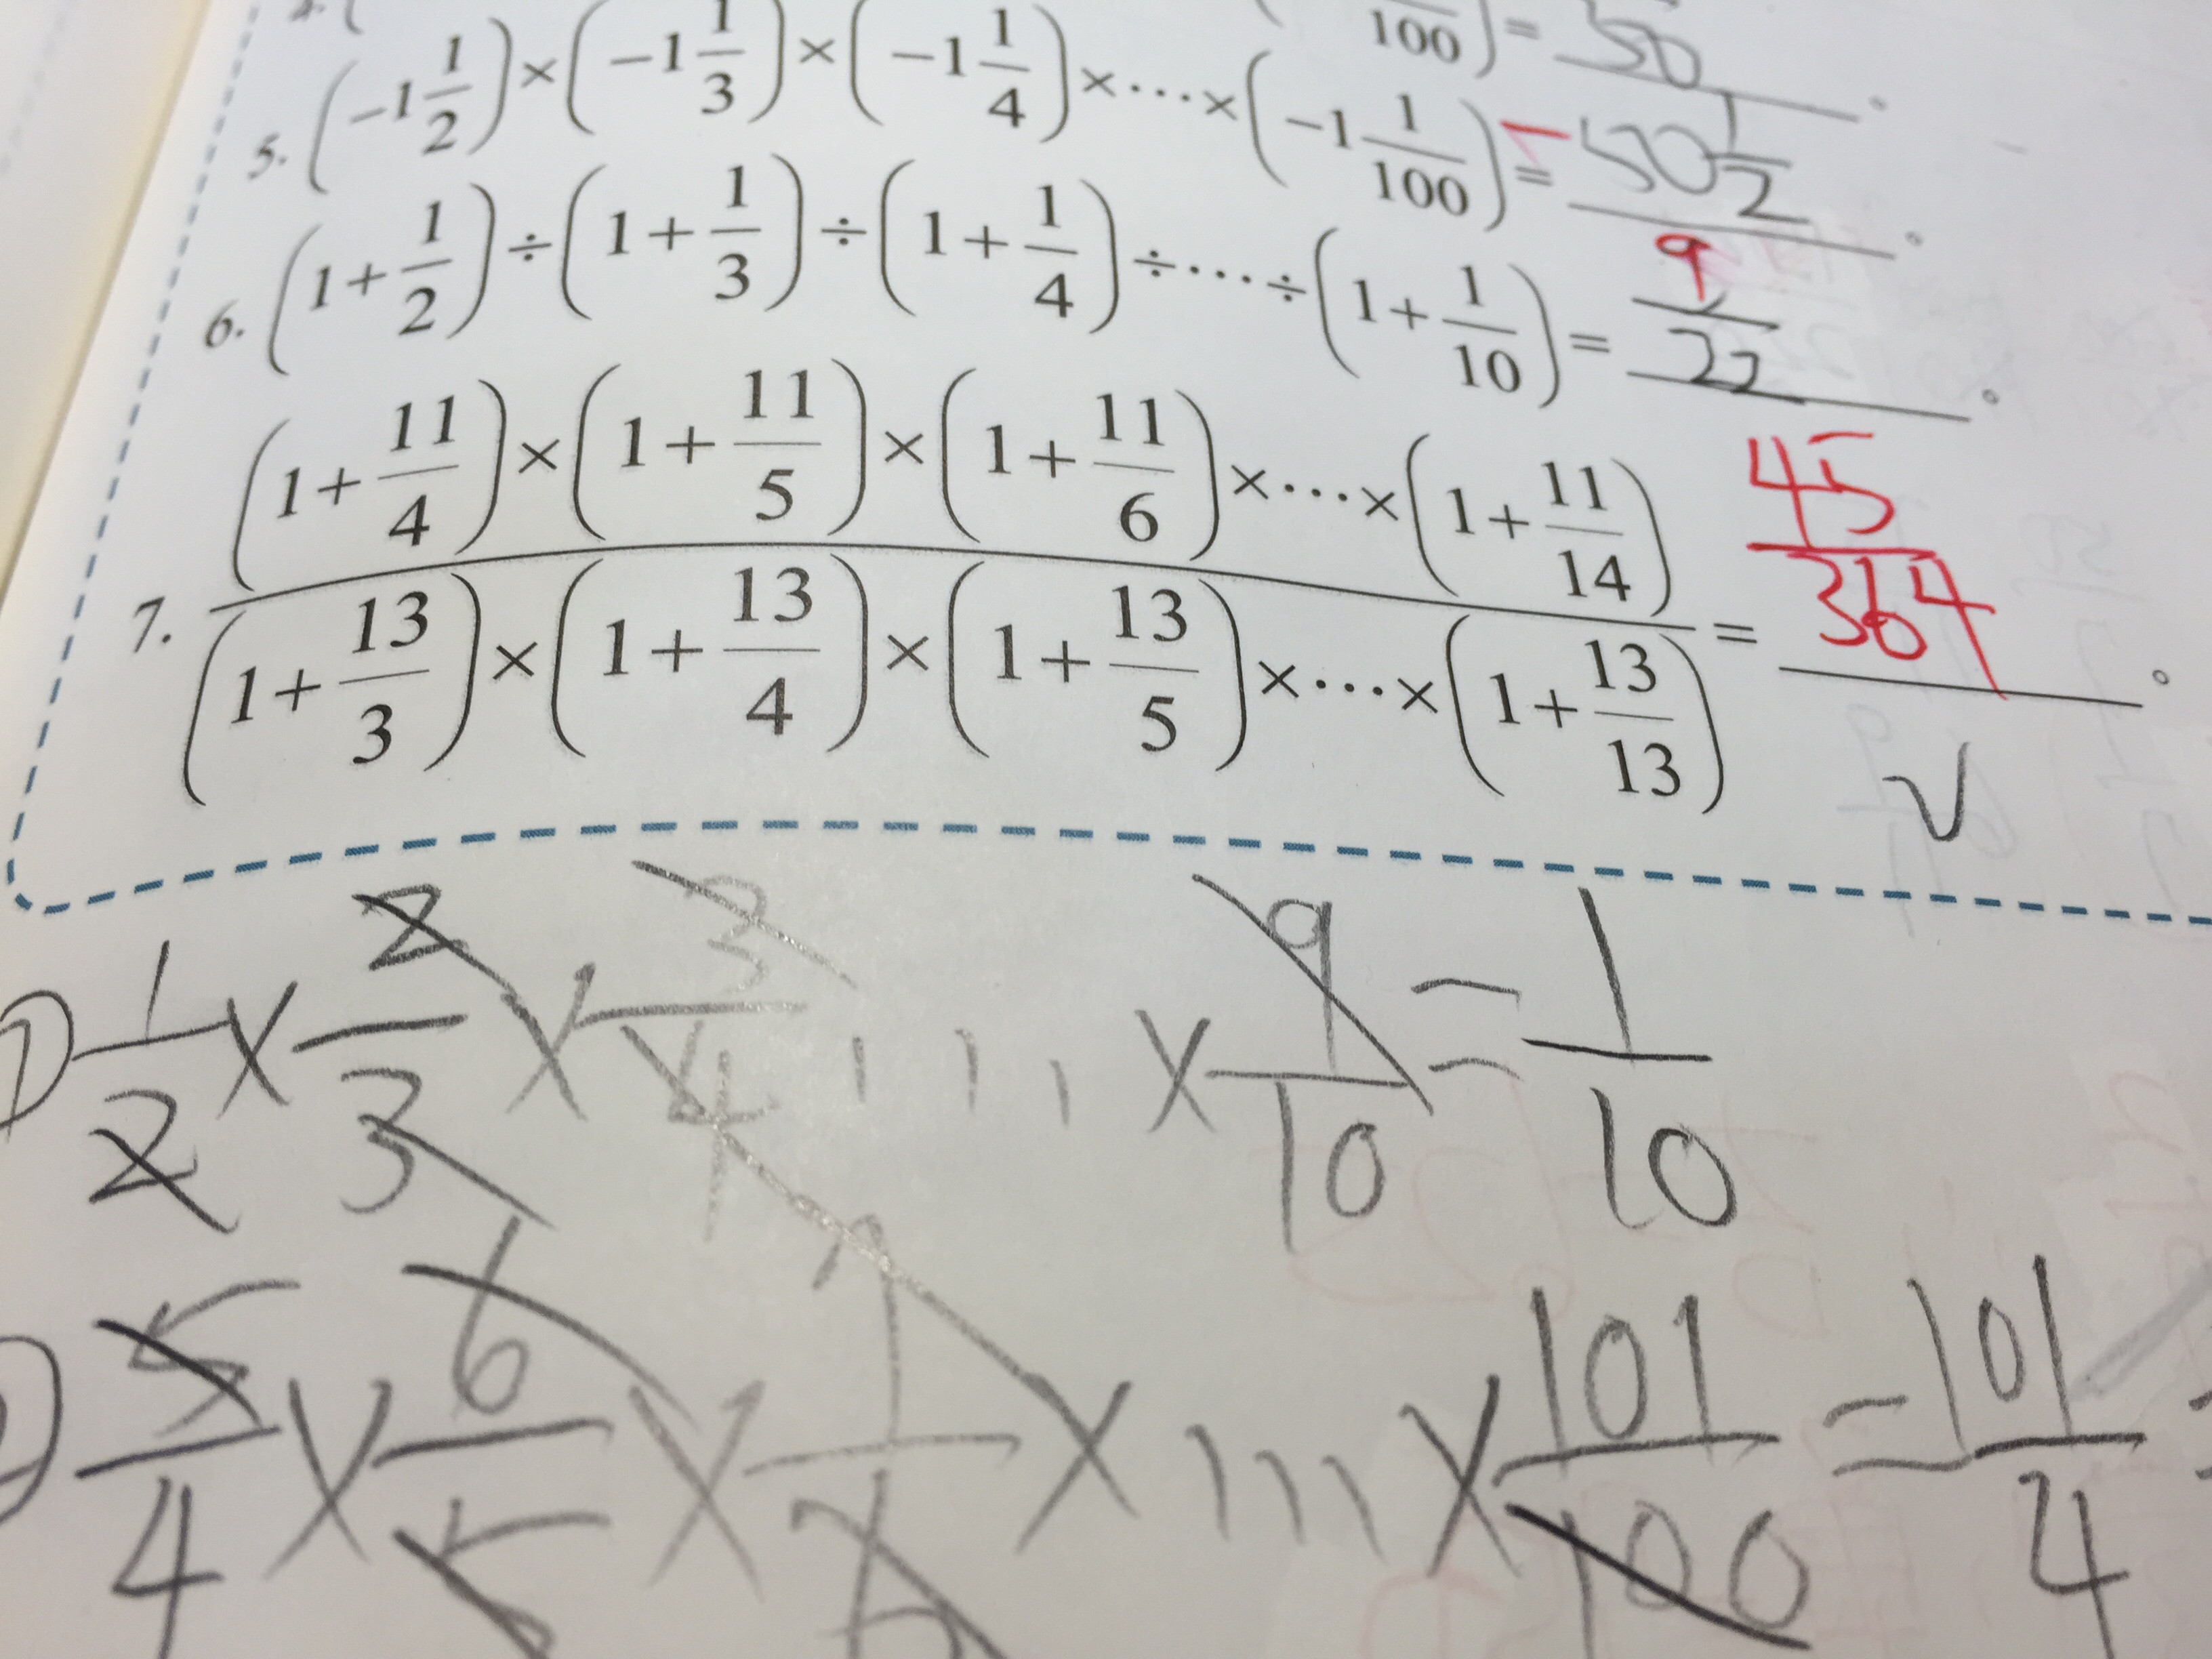 100) = 50 。
5. (-1 1/2) × (-1 1/3) × (-1 1/4) × ··· × (-1 1/100) = -50 1/2 。
6. (1+1/2) ÷ (1+1/3) ÷ (1+1/4) ÷ ··· ÷ (1+1/10) = 9/22 。
7. ((1+11/4) × (1+11/5) × (1+11/6) × ··· × (1+11/14)) / ((1+13/3) × (1+13/4) × (1+13/5) × ··· × (1+13/13)) = 45/364 。
√
① 1/2 × 2/3 × 3/4 ··· × 9/10 = 1/10
5/4 × 6/5 × 7/6 × ··· × 101/100 = 101/4 =